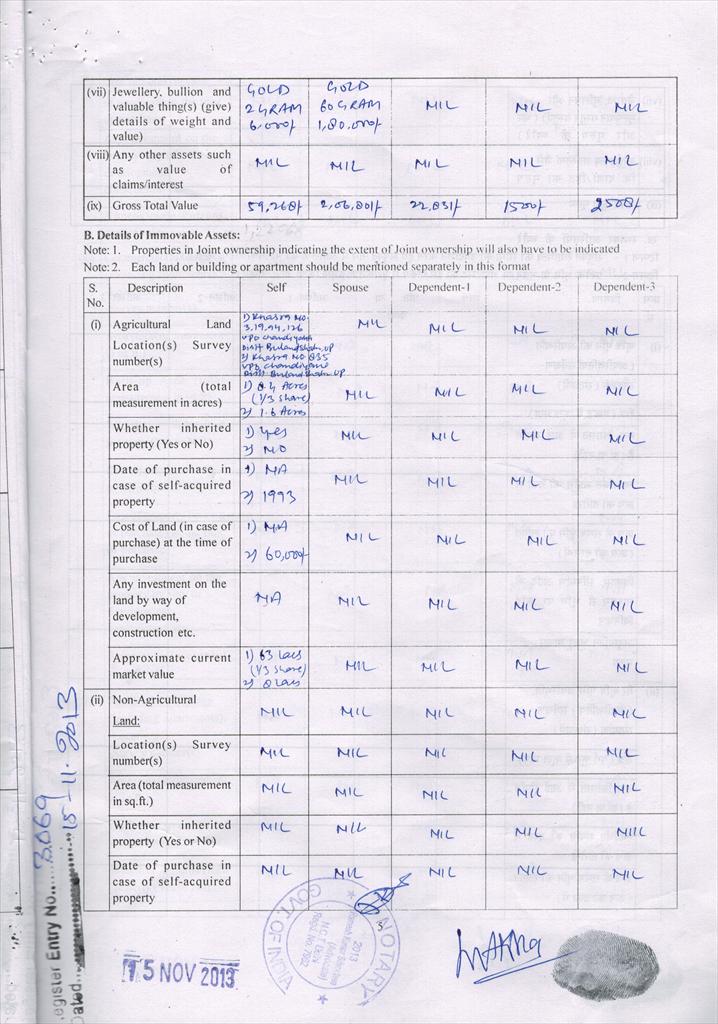 (vii) Jewellery, bullion and GOLD GOLD NIL NIL NIL
valuable thing(s) (give) 2 GRAM 60 GRAM
details of weight and 6,000/- 1,80,000/-
value)
(viii) Any other assets such NIL NIL NIL NIL NIL
as value of
claims/interest
(ix) Gross Total Value 59,268/- 2,06,801/- 22,831/- 1500/- 2500/-
B. Details of Immovable Assets:
Note: 1. Properties in Joint ownership indicating the extent of Joint ownership will also have to be indicated
Note: 2. Each land or building or apartment should be mentioned separately in this format
S. Description Self Spouse Dependent-1 Dependent-2 Dependent-3
No.
(i) Agricultural Land 1) Khasra No. NIL NIL NIL NIL
3,19,94,126
Location(s) Survey VPO
number(s) Distt Bulandshahr UP
2) Khasra NO 835
VPO
Distt Bulandshahr UP
Area (total 1) 8.4 Acres NIL NIL NIL NIL
measurement in acres) (1/3 share)
2) 1.6 Acres
Whether inherited 1) Yes NIL NIL NIL NIL
property (Yes or No) 2) NO
Date of purchase in 1) NA NIL NIL NIL NIL
case of self-acquired
property 2) 1993
Cost of Land (in case of 1) NA NIL NIL NIL NIL
purchase) at the time of
purchase 2) 60,000/-
Any investment on the NA NIL NIL NIL NIL
land by way of
development,
construction etc.
Approximate current 1) 63 Lacs NIL NIL NIL NIL
market value (1/3 share)
2) 8 Lacs
(ii) Non-Agricultural NIL NIL NIL NIL NIL
Land:
Location(s) Survey NIL NIL NIL NIL NIL
number(s)
Area (total measurement NIL NIL NIL NIL NIL
in sq.ft.)
Whether inherited NIL NIL NIL NIL NIL
property (Yes or No)
Date of purchase in NIL NIL NIL NIL NIL
case of self-acquired
property
3
NOTARY
GOVT. OF INDIA
2013
15 NOV 2013
egister Entry No. 3069
Dated 15-11-2013